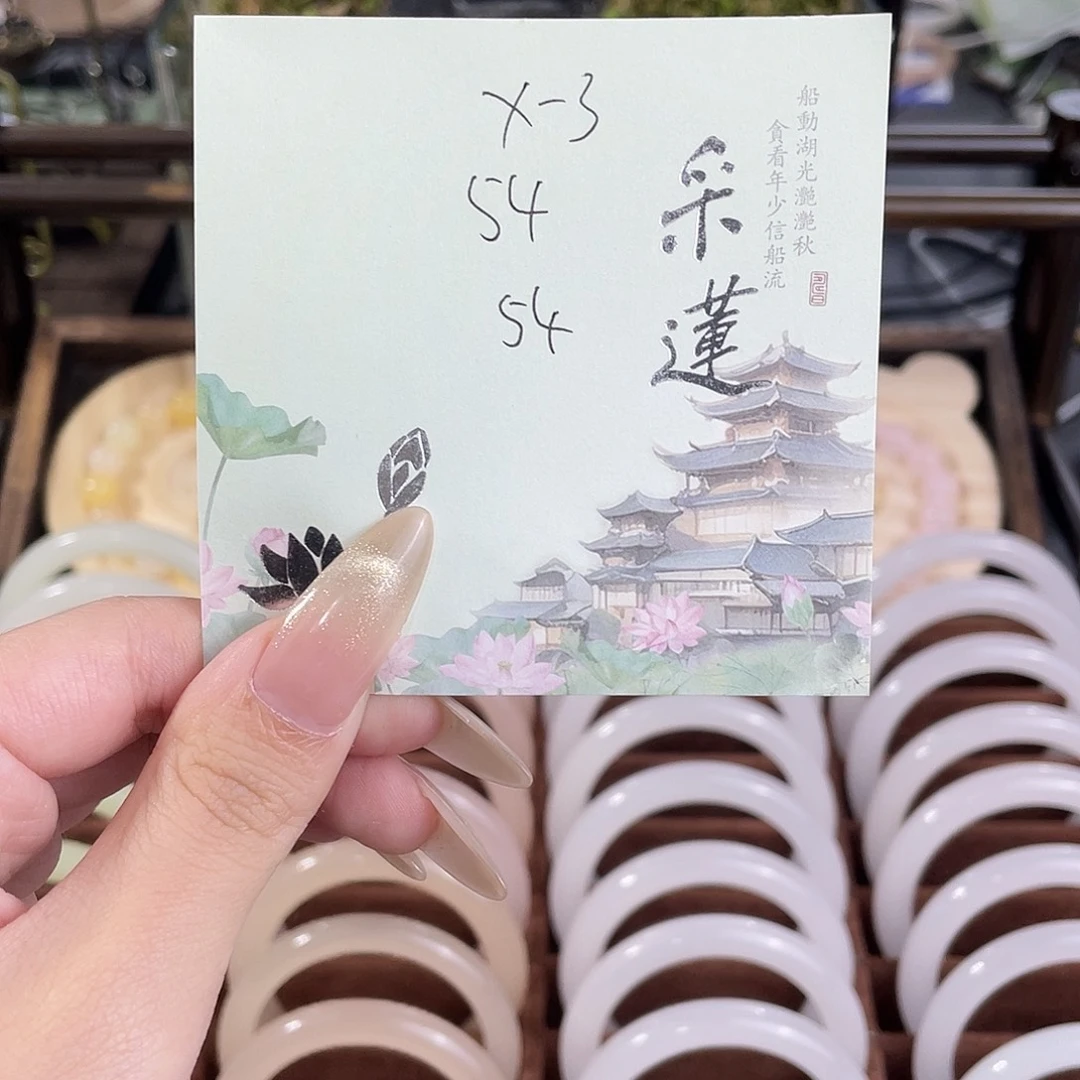 X-3
54
54
采蓮
船動湖光灧灧秋
貪看年少信船流